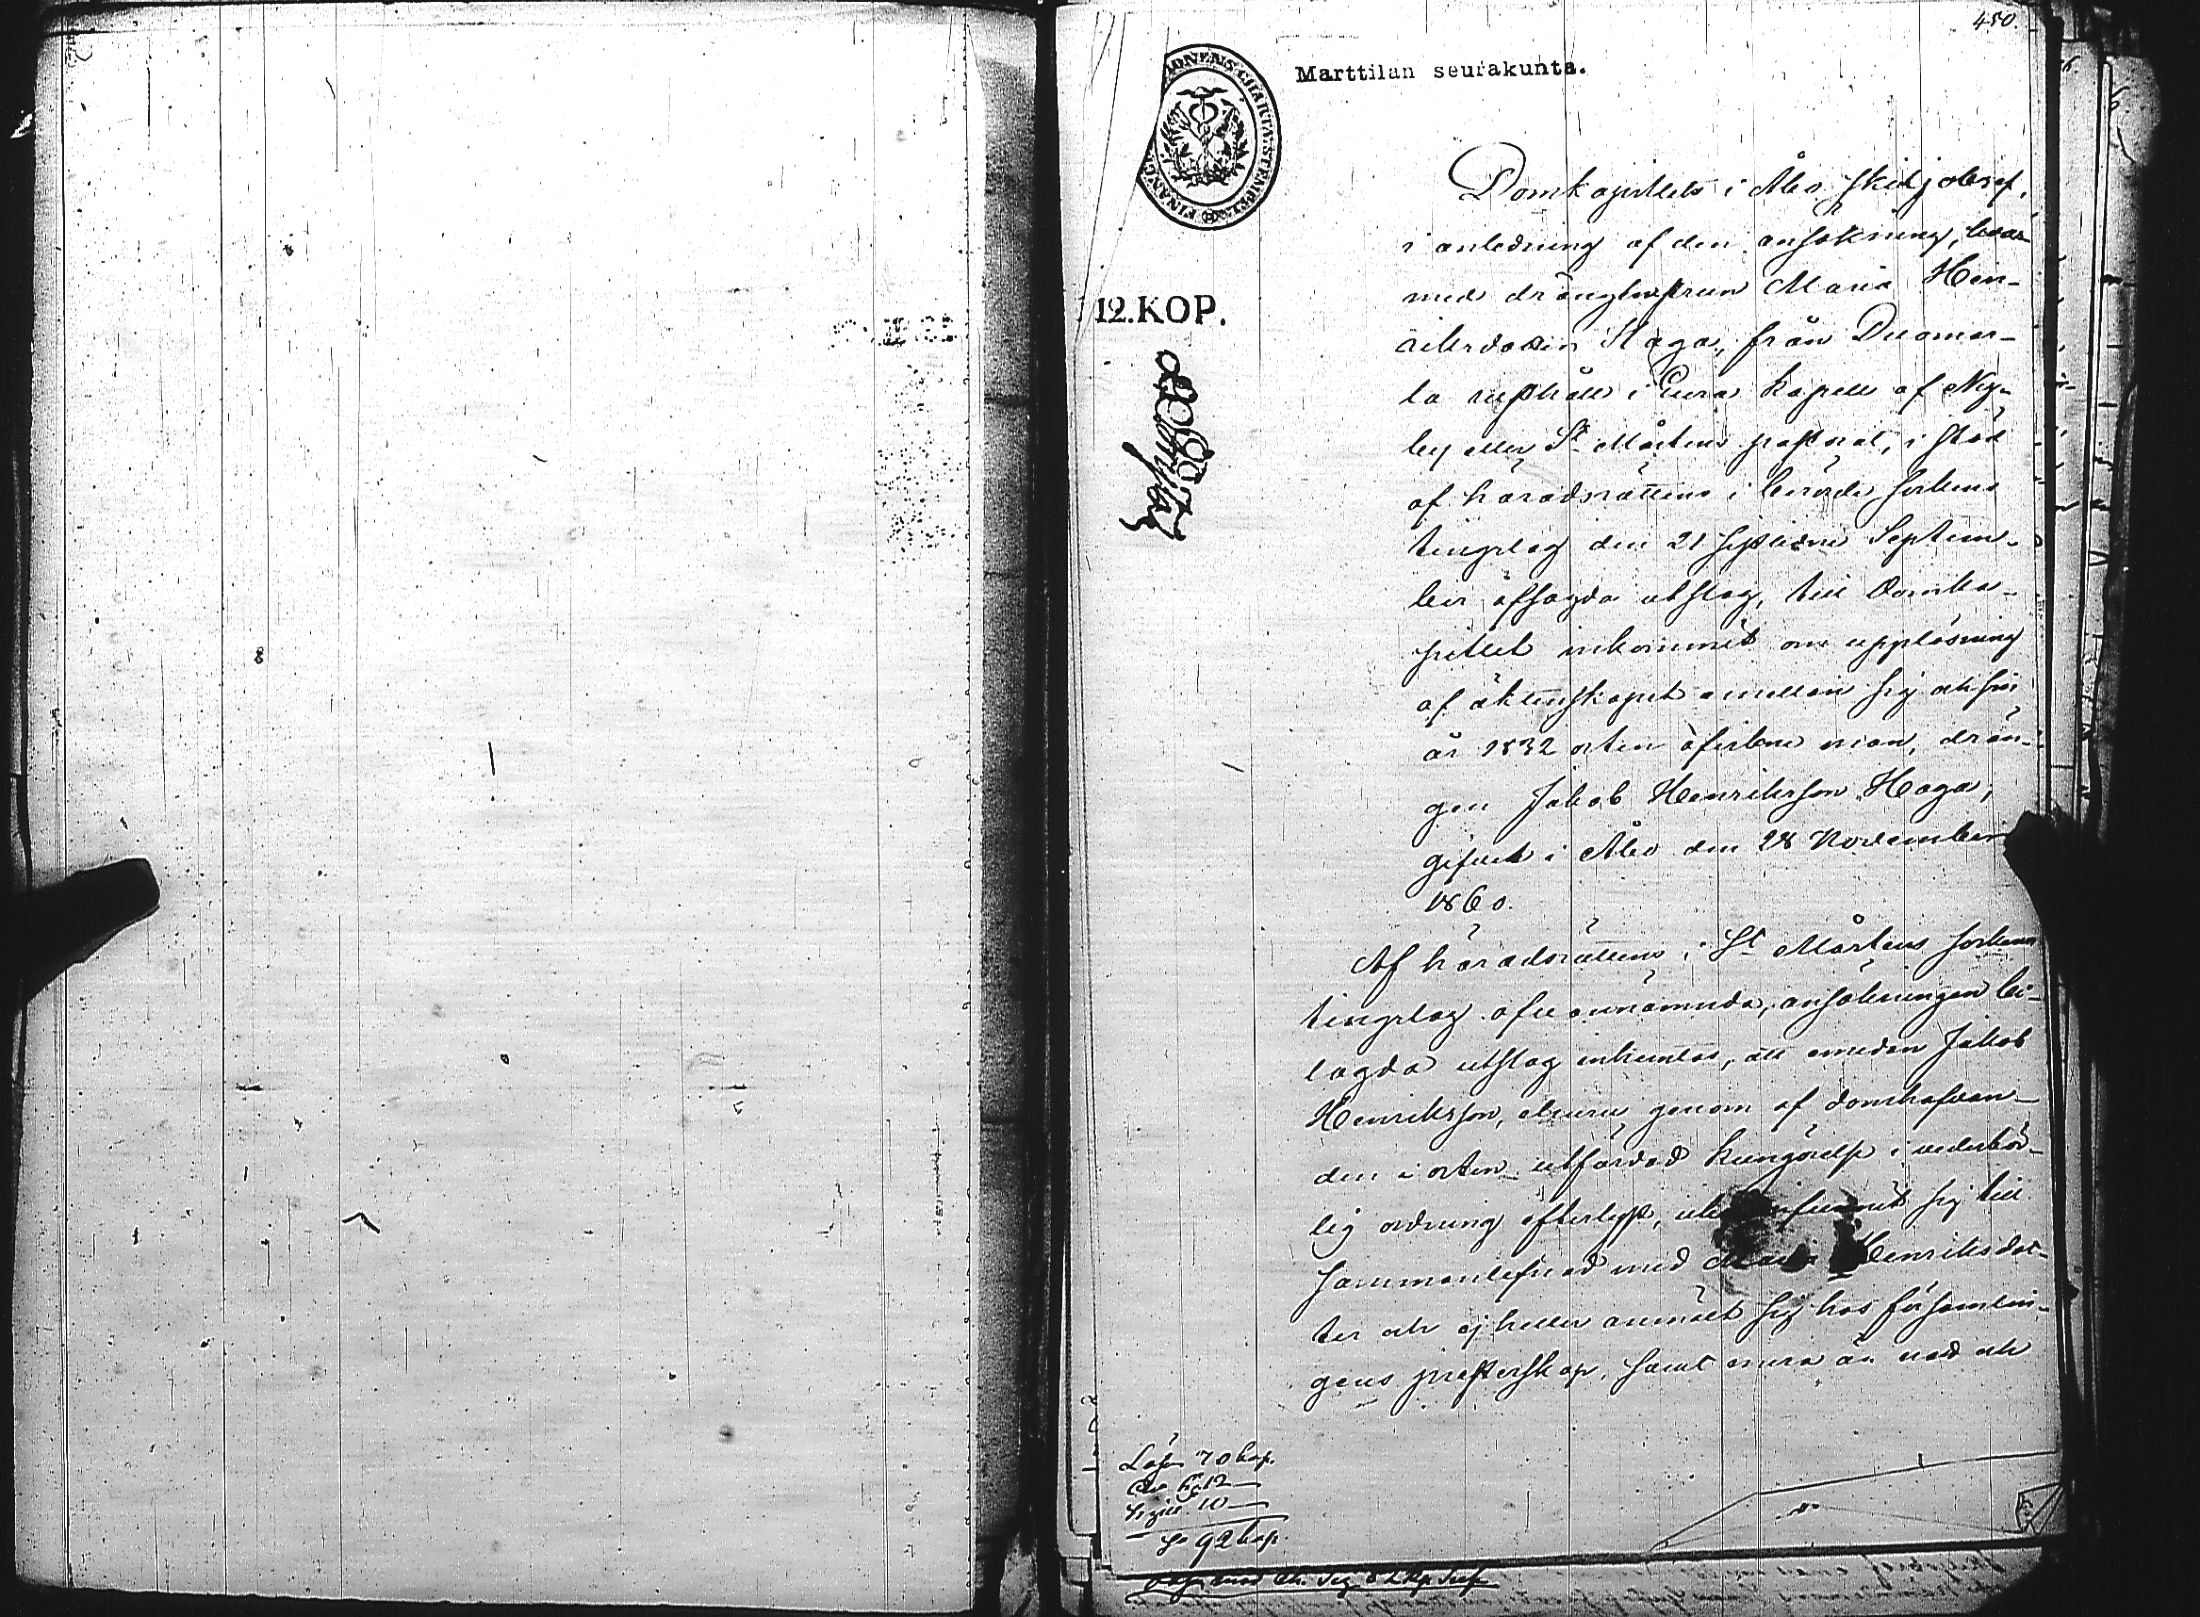 450.
Marttilan seurakunta.
FINANS EXPEDITIONENS CHARTÆ STEMPEL
12.KOP.
Domkapitlets i Åbo skiljobref,
i anledning af den ansökning, hvar-
med dränghustrun Maria Hen-
riksdotter Haga, från
la rusthåll i Eura kapell af Ny-
by eller St Mårtens pastorat, i stöd
af häradsrättens i berörde sockens
tingslag den 21 sistlidne Septem-
ber afsagda utslag, till Domka-
pitlet inkommit om upplösning
af äktenskapet emellan sig och sin
år 1832 orten öfvergifne man, drän-
gen Jakob Henriksson Haga;
gifvet i Åbo den 28 November
1860.
Af häradsrättens i St Mårtens sockens
tingslag ofvannämnda, ansökningen bi-
lagda utslag inhemtas, att emedan Jakob
Henriksson, ehuru genom af domhafvan-
den i orten utfärdad kungörelse i vederbör-
lig ordning efterlyst, icke infunnit sig till
sammanlefnad med Maria Henriksdot-
ter och ej heller anmält sig hos församlin-
gens presterskap, samt mera än natt och
Lösen 70 kop.
12
Sigill. 10
Sa 92 kop.